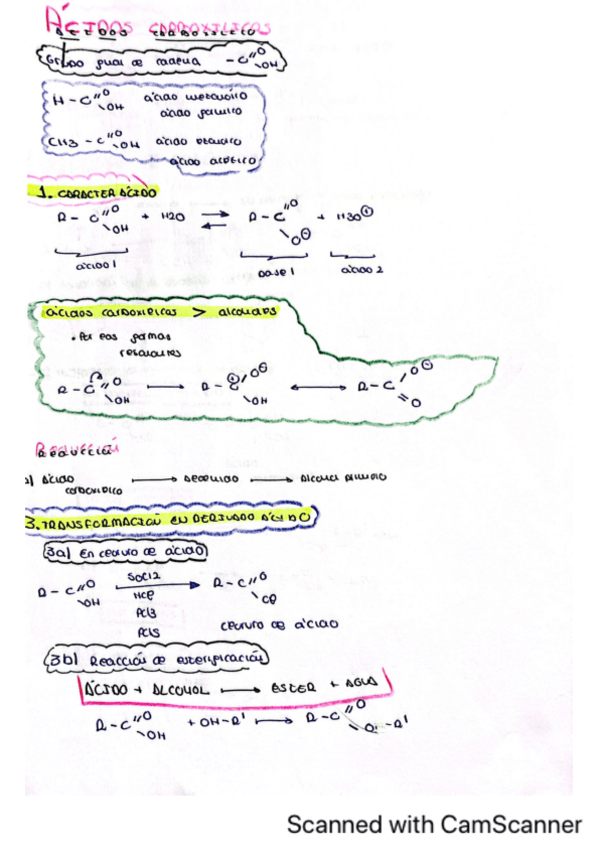 ÁCIDOS CARBOXILICOS
Grupo final de cadena -C=O OH
H-C=O OH ácido metanóico
ácido fórmico
CH3-C=O OH ácido etanóico
ácido acético
1. CARÁCTER ÁCIDO
R-C=O OH + H2O ⇌ R-C=O O⊖ + H3O⊕
ácido 1 base 1 ácido 2
ácidos carboxílicos > alcoholes
• Por las formas
resonantes
R-C=O OH → R-C⊕ O⊖ OH ↔ R-C O⊖ =O
REDUCCIÓN
a) Ácido carboxílico → Aldehído → Alcohol primario
3. TRANSFORMACIÓN EN DERIVADO ÁCIDO
3a) En cloruro de ácido
R-C=O OH → R-C=O Cl
SOCl2
HCl
PCl3
PCl5
cloruro de ácido
3b) Reacción de esterificación
ÁCIDO + ALCOHOL → ESTER + AGUA
R-C=O OH + OH-R' → R-C=O O-R'
Scanned with CamScanner